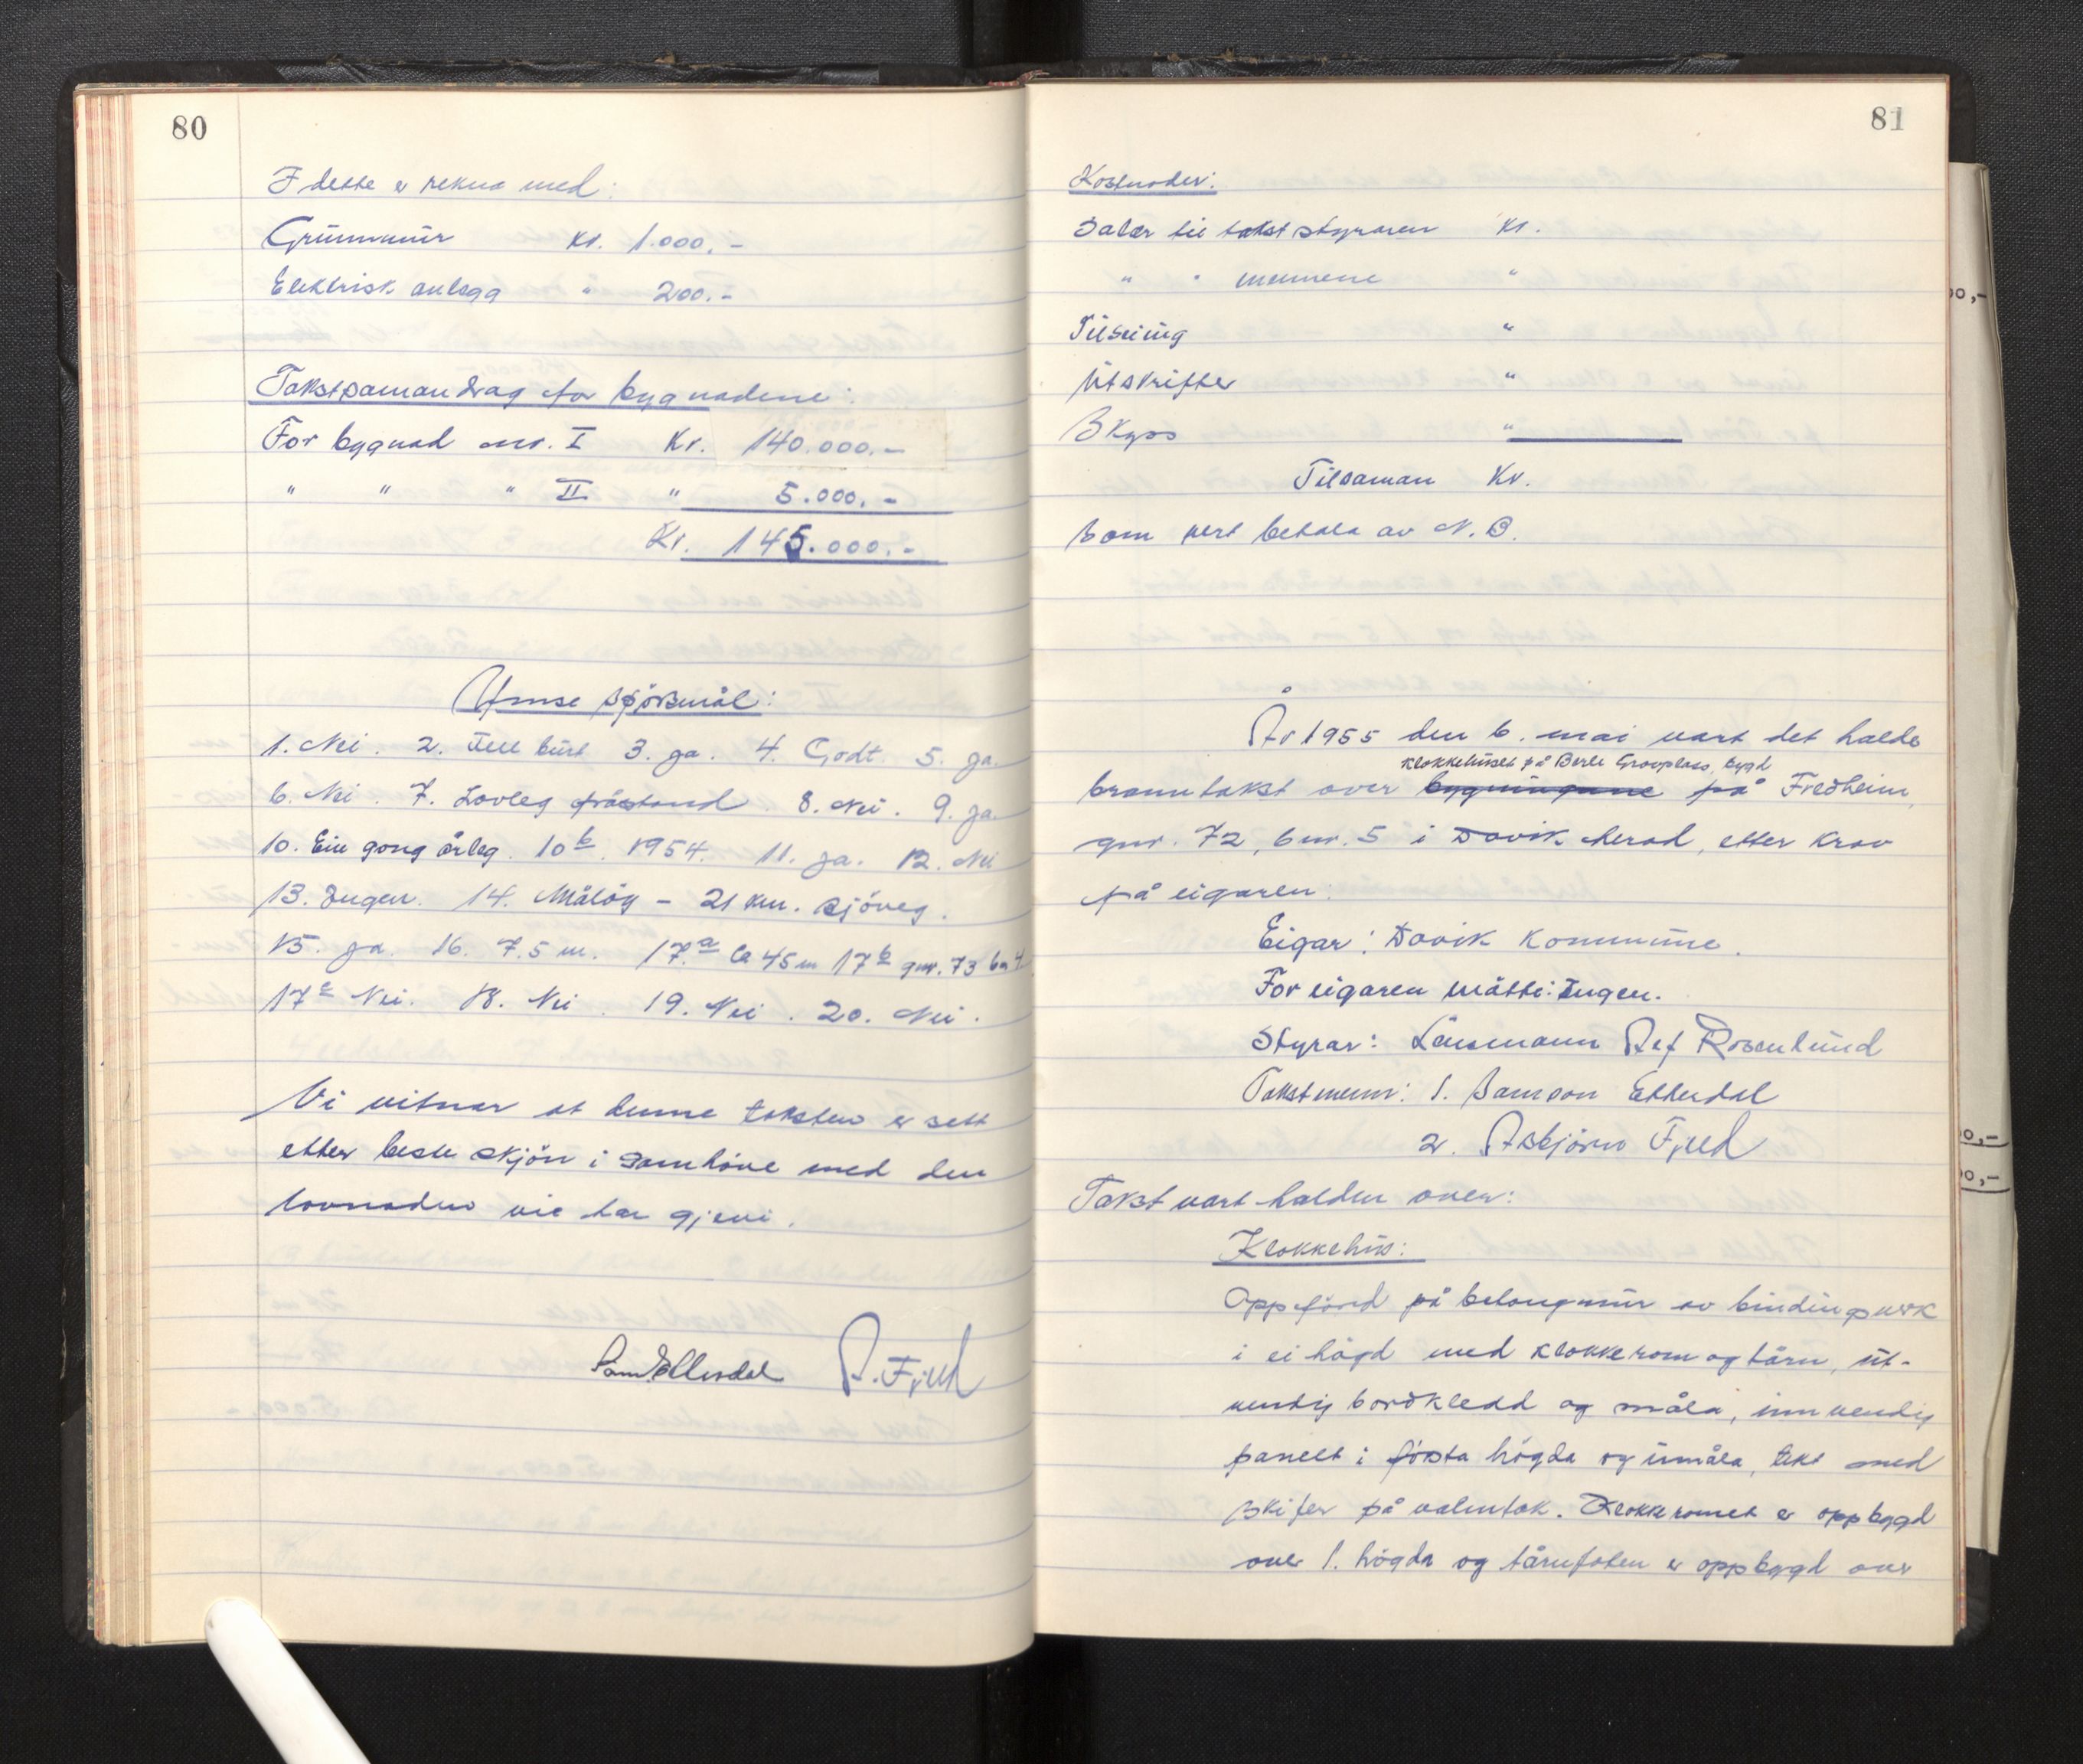 80
I dette er rekna med:
Grunnmur Kr. 1.000.-
Elektrisk anlegg " 200.-
Takstsamandrag for bygnadene:
For bygnad nr. I Kr. 140.000.-
" " " II " 5.000.-
Kr. 145.000.-
Ymse spörsmål:
1. Nei. 2. Fell burt 3. Ja. 4. Godt. 5. Ja.
6. Nei. 7. Lovleg avstand 8. Nei. 9. Ja.
10. Ein gong årleg. 10b. 1954. 11. Ja. 12. Nei
13. Ingen. 14. Målöy - 21 km. sjöveg.
15. Ja. 16. 7.5 m. 17.a Ca 45 m 17b gnr. 73 bn 4.
17c Nei. 18. Nei. 19. Nei. 20. Nei.
Vi vitnar at denne taksten er sett
etter beste skjön i samhöve med den
lovnaden vie har gjevi.
Sam. Ettesdal A. Fjeld
81
Kostnader:
Salær til takststyraren Kr.
" " mennene "
Tilseiing "
Utskrifter "
Skyss "
Tilsaman Kr.
Som vert betala av N. B.
År 1955 den 6. mai vart det halde
klokkehuset på Berle Gravplass, bygd
branntakst over bygningane på Fredheim,
gnr. 72, bnr. 5 i Davik herad, etter krav
på eigaren:
Eigar: Davik Kommune.
For eigaren mötte: Ingen.
Styrar: Lensmann Alf Rosenlund
Takstmenn: 1. Samson Ettesdal
2. Asbjörn Fjeld
Takst vart halden over:
Klokkehus:
Oppförd på betongmur av bindingsverk
i ei högd med klokkerom og tårn, ut-
vendig bordkledd og måla, innvendig
panelt i fösta högda og umåla, tekt med
skifer på valmtak. Klokkeromet er oppbygd
over 1. högda og tårnfoten er oppbygd over
00,-
00,-
00,-